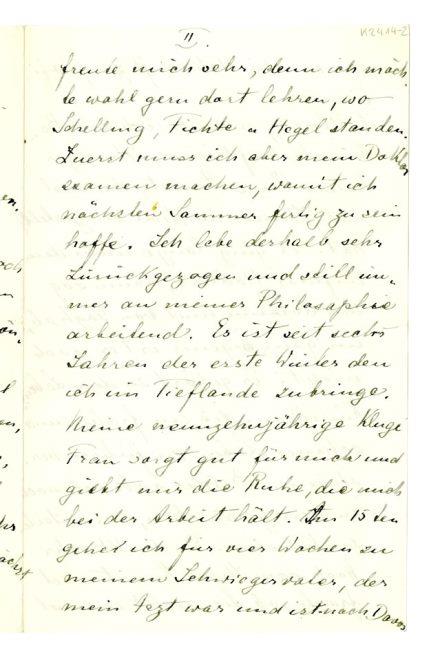 II.
K2414-2
freute mich sehr, denn ich möch
te wohl gern dort lehren, wo
Schelling, Fichte u Hegel standen.
Zuerst muss ich aber mein Doktor
examen machen, womit ich
nächsten Sommer fertig zu sein
hoffe. Ich lebe deshalb sehr
zurückgezogen und still im-
mer an meiner Philosophie
arbeitend. Es ist seit sechs
Jahren der erste Winter den
ich im Tieflande zubringe.
Meine neunzehnjährige kluge
Frau sorgt gut für mich und
giebt mir die Ruhe, die mich
bei der Arbeit hält. Am 15 ten
gehe ich für vier Wochen zu
meinem Schwiegervater, der
mein Arzt war und ist nach Davos